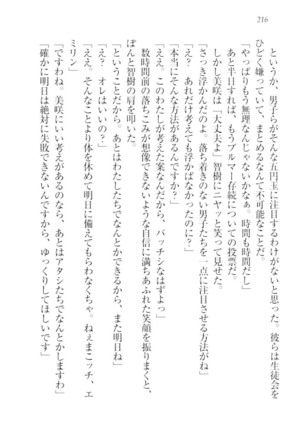 216
というか、男子らがそんな五円玉に注目するわけがないと思った。彼らは生徒会を
ひどく嫌っていて、まとめるなんて不可能なことだ。
「やっぱりもう無理なんじゃないかなぁ。時間も時間だし」
あと半日すれば、もうブルマー存続についての投票だ。
しかし美咲は「大丈夫よ」智樹にニヤッと笑って見せた。
「さっき浮かんだのよ。落ち着きのない男子たちを一点に注目させる方法がね」
「え？　あれだけ考えても浮かばなかったのに？」
「本当にそんな方法があるんですか？」
「ええ。このわたしが考えた案なんだから、バッチシなはずよっ」
数時間前の落ちこみが想像できないような自信に満ちあふれた笑顔を振りまくと、
ぽんと智樹の肩を叩いた。
「ということだから、あとはわたしたちでなんとかできるから、また明日ね」
「え？　オレはいいの？」
「ええ。そんなことより体を休めて明日に備えてもらわなくちゃ。ねぇまこッチ、エ
ミリン」
「ですわね。美咲にいい考えがあるのなら、あとはアタシたちでなんとかしますわ」
「確かに明日は絶対に失敗できないんですから、ゆっくりしてほしいです」